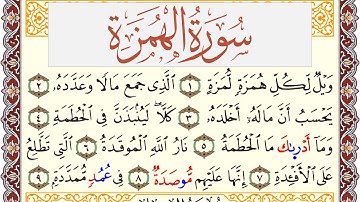 سُورَةُ الْهُمَزَةِ
وَيْلٌ لِّكُلِّ هُمَزَةٍ لُّمَزَةٍ ١ الَّذِي جَمَعَ مَالًا وَعَدَّدَهُۥ ٢
يَحْسَبُ أَنَّ مَالَهُۥٓ أَخْلَدَهُۥ ٣ كَلَّا ۖ لَيُنۢبَذَنَّ فِي الْحُطَمَةِ ٤
وَمَآ أَدْرَىٰكَ مَا الْحُطَمَةُ ٥ نَارُ اللَّهِ الْمُوقَدَةُ ٦ الَّتِي تَطَّلِعُ
عَلَى الْأَفْـِٔدَةِ ٧ إِنَّهَا عَلَيْهِم مُّؤْصَدَةٌ ٨ فِي عَمَدٍ مُّمَدَّدَةٍۭ ٩